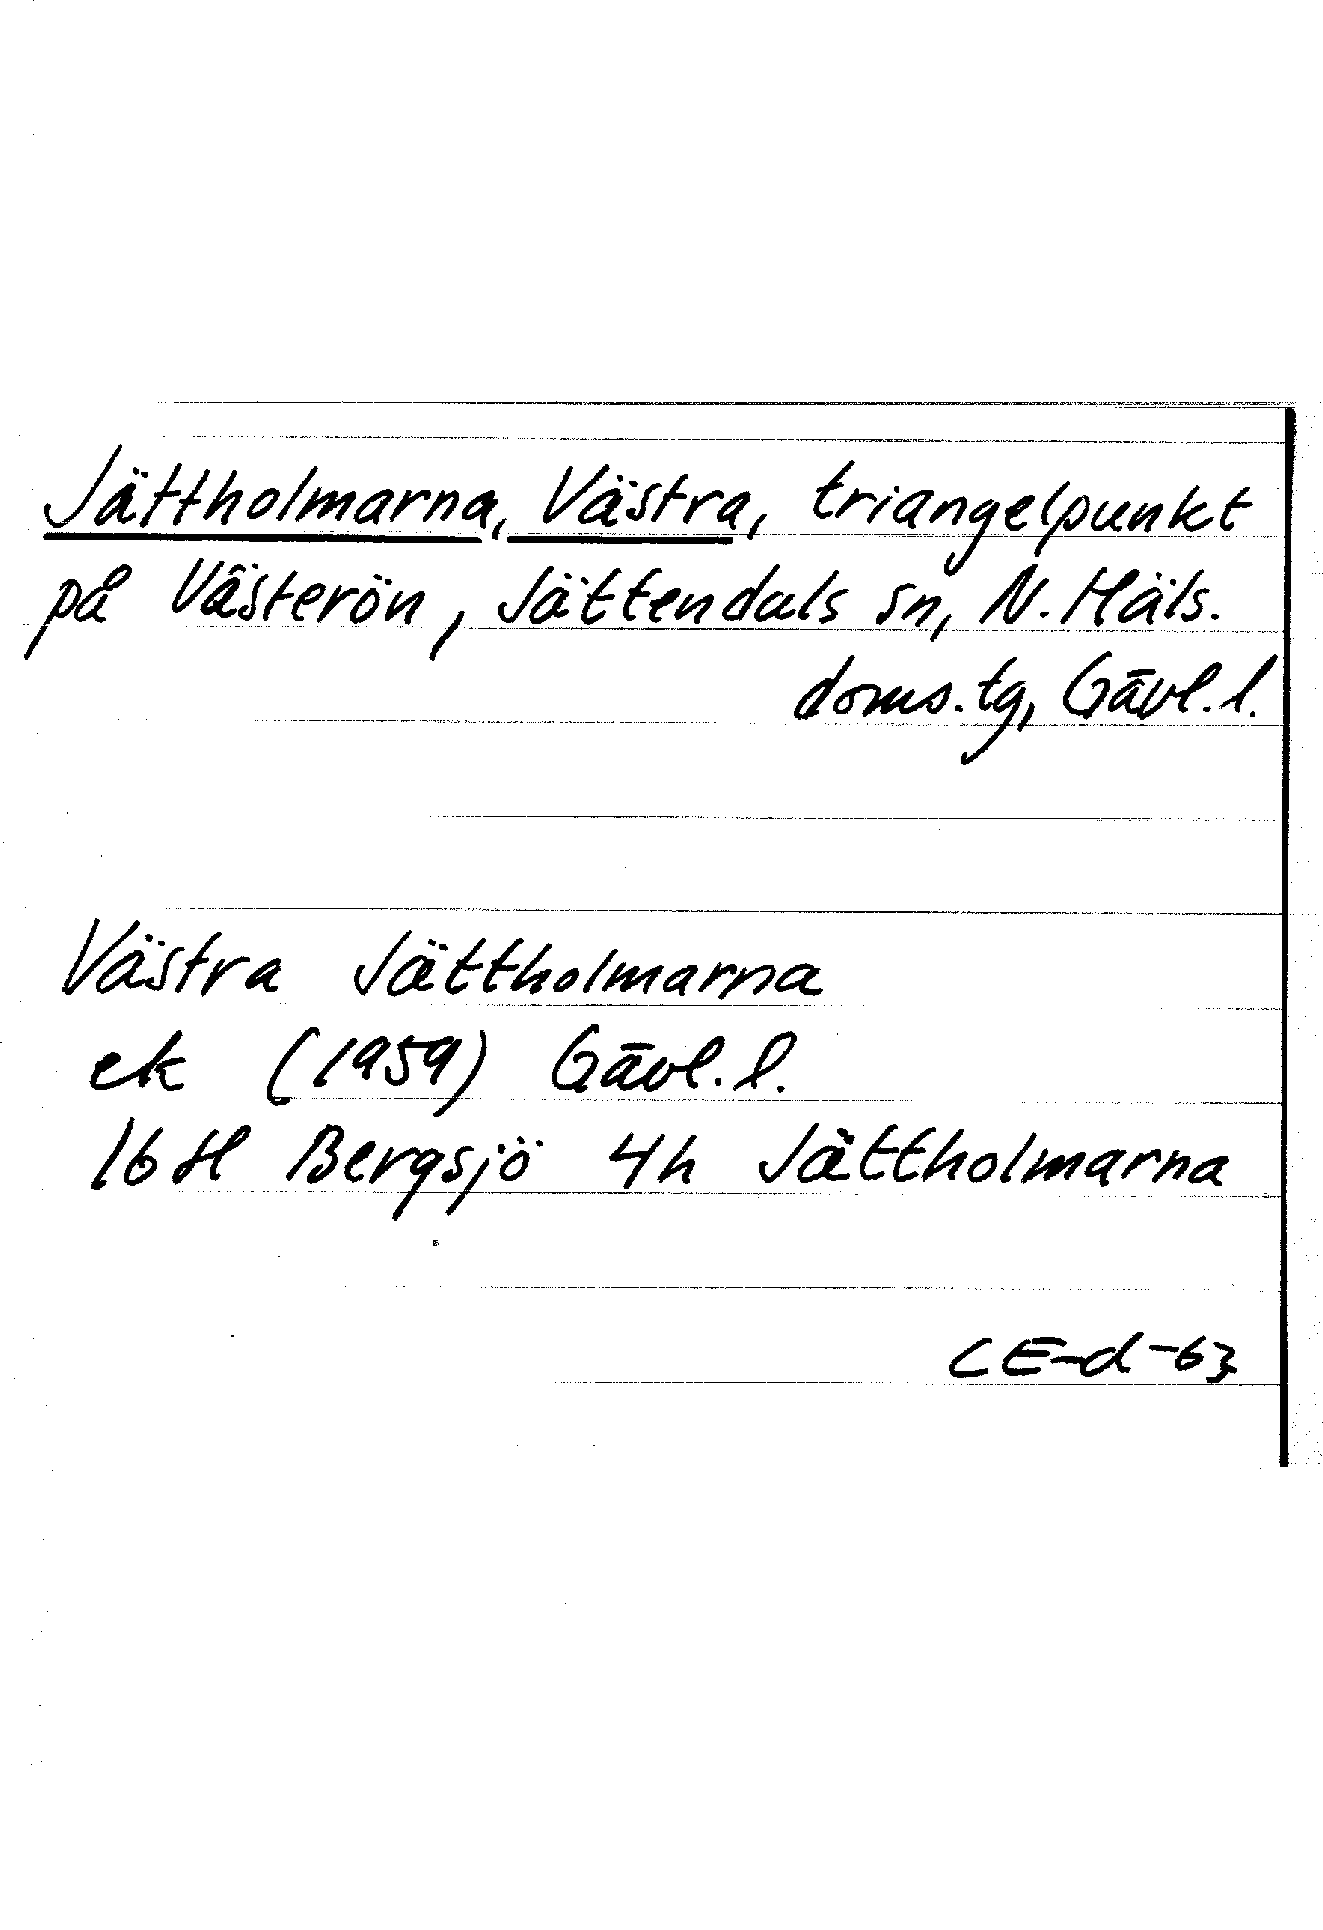 Jättholmarna, Västra, triangelpunkt
på Västerön, Jättendals sn, N. Häls.
doms.tg, Gävl. l.
Västra Jättholmarna
ek (1959) Gävl. l.
16 H Bergsjö 4h Jättholmarna
CE-d-63